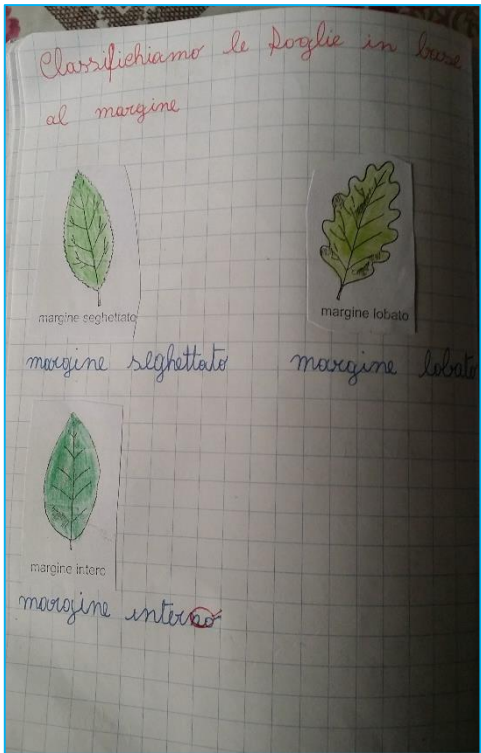 Classifichiamo le foglie in base
al margine
margine seghettato
margine lobato
margine seghettato
margine lobato
margine intero
margine